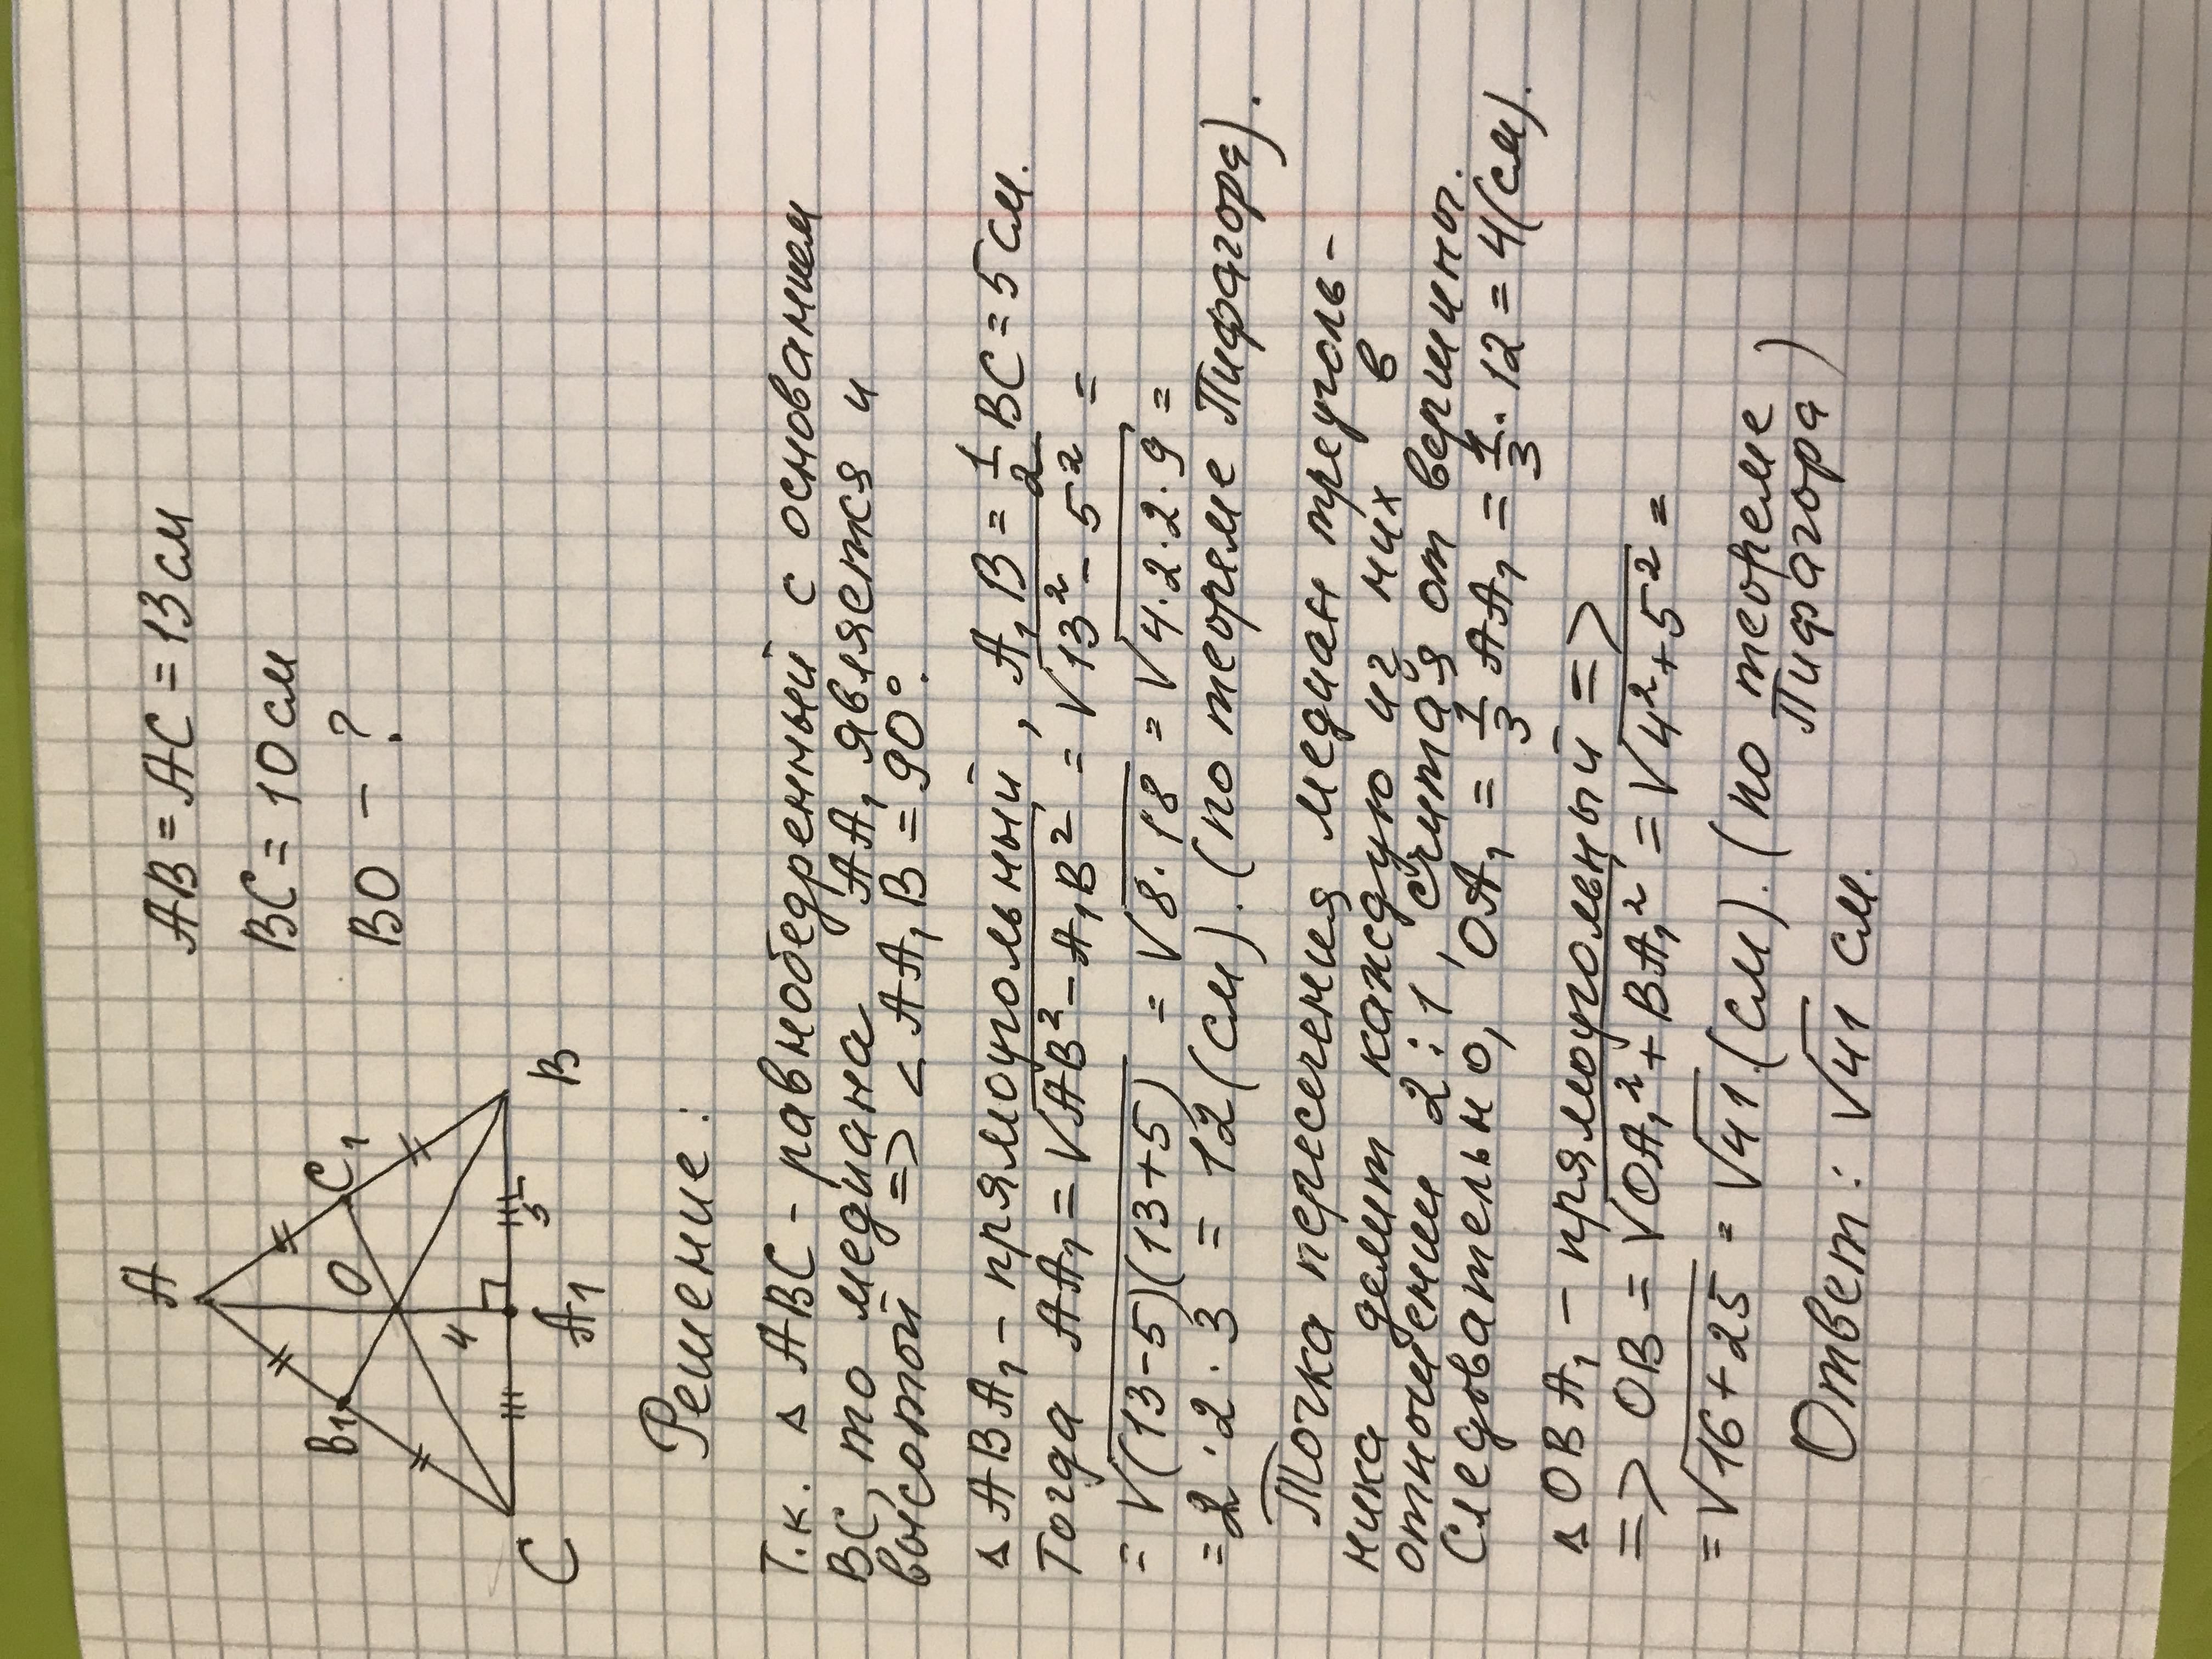 A
B₁
C₁
O
4
5
C
A₁
B
AB = AC = 13 см
BC = 10 см
BO - ?
Решение:
Т.к. △ ABC - равнобедренный с основанием
BC, то медиана AA₁ является и
высотой => < AA₁B = 90°.
△ ABA₁ - прямоугольный, A₁B = 1/2 BC = 5 см.
Тогда AA₁ = √(AB² - A₁B²) = √(13² - 5²) =
= √((13-5)(13+5)) = √(8·18) = √(4·2·2·9) =
= 2·2·3 = 12 (см). (по теореме Пифагора).
Точка пересечения медиан треуголь-
ника делит каждую из них в
отношении 2:1, считая от вершины.
Следовательно, OA₁ = 1/3 AA₁ = 1/3 · 12 = 4 (см).
△ OBA₁ - прямоугольный =>
=> OB = √(OA₁² + BA₁²) = √(4² + 5²) =
= √(16+25) = √41 (см). (по теореме
Пифагора)
Ответ: √41 см.